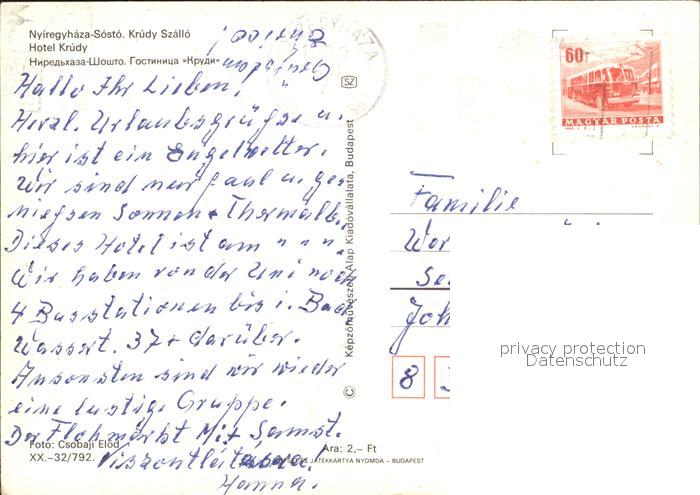 Nyíregyháza-Sóstó. Krúdy Szálló
Hotel Krúdy
Ниредьхаза-Шошто. Гостиница «Круди»
SZ
Hallo Ihr Lieben!
Herzl. Urlaubsgrüße u.
hier ist ein Engelwetter.
Wir sind nur faul u. ge-
niessen Sonnen + Thermalb.
Dieses Hotel ist am " " "
Wir haben von der Uni noch
4 Busstationen bis i. Bad
Wassert. 37+ darüber.
Ansonsten sind wir wieder
eine lustige Gruppe.
Der Flohmarkt Mi + Samst.
Viszontlátásra!
Hanna.
Foto: Csobaji Előd
XX.–32/792.
Ára: 2,– Ft
JÁTÉKKÁRTYA NYOMDA – BUDAPEST
© Képzőművészeti Alap Kiadóvállalata, Budapest
60f
MAGYAR POSTA
Familie
Wer
Se
Joh
8
privacy protection
Datenschutz